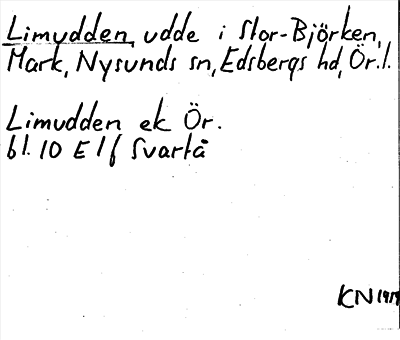 Limudden, udde i Stor-Björken,
Mark, Nysunds sn, Edsbergs hd, Ör.l.
Limudden ek Ör.
bl. 10 E 1 f Svartå
KN 1919